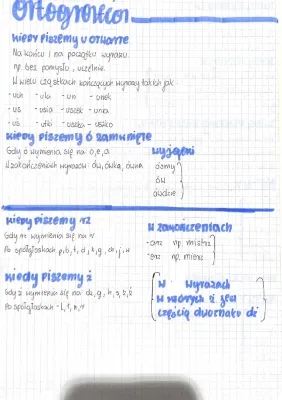 Ortograficon
Kiedy piszemy u otwarte
Na końcu i na początku wyrazu.
np. bez pomysłu, uczelnia.
W wielu cząstkach kończących wyrazy takich jak:
-uch -ula -un -unek
-us -usia -uszek -unia
-uś -utki -uszka -uszko
Kiedy piszemy ó zamknięte
Gdy ó wymienia się na o, e, a.
W zakończeniach wyrazów: ów, ówka, ówna
wyjątki
ósmy
ów
ówdzie
Kiedy piszemy rz
Gdy rz wymienia się na r
Po spółgłoskach p, b, t, d, k, g, ch, j, w
W zakończeniach
-arz np. mistrz
-erz np. mierz
Kiedy piszemy ż
Gdy ż wymienia się na: dz, g, h, s, z, ź
Po spółgłoskach - l, ł, n, r
W wyrazach
w których ż jest
częścią dwuznaku dż